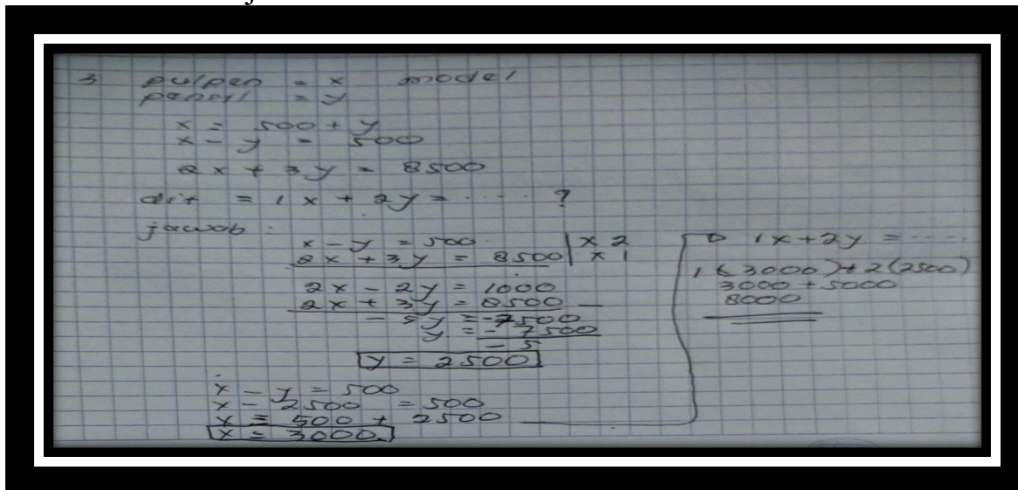 3 pulpen = x model
pensil = y
x = 500 + y
x - y = 500
2x + 3y = 8500
dit = 1x + 2y = ..... ?
jawab :
x - y = 500 | x 2
2x + 3y = 8500 | x 1
2x - 2y = 1000
2x + 3y = 8500 —
- 5y = -7500
y = -7500
- 5
y = 2500
x - y = 500
x - 2500 = 500
x = 500 + 2500
x = 3000
1x + 2y = .....
1(3000) + 2(2500)
3000 + 5000
8000